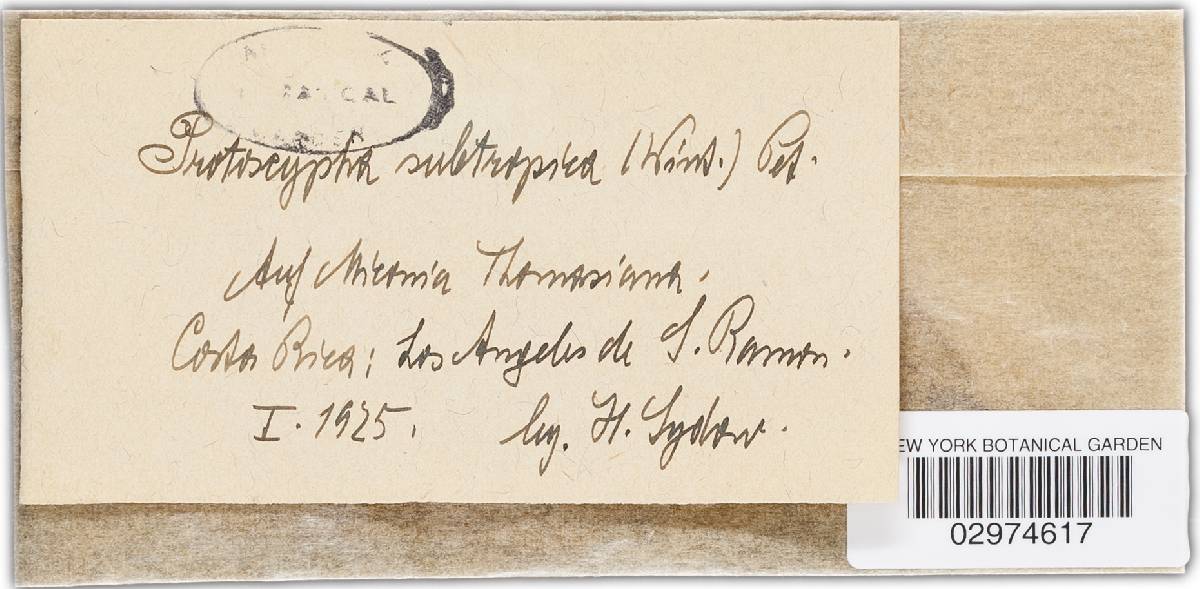 Protoscypha subtropica (Wint.) Pet.
Auf Miconia Thomasiana.
Costa Rica: Los Angeles de S. Ramon.
I. 1925. leg. H. Sydow.
EW YORK BOTANICAL GARDEN
02974617